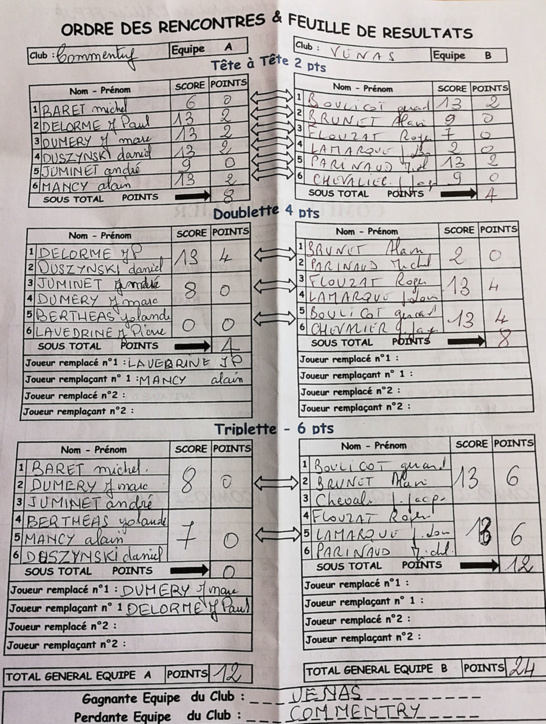 ORDRE DES RENCONTRES & FEUILLE DE RESULTATS
Club : Commentry Equipe A Club : VENAS Equipe B
Tête à Tête 2 pts
Nom - Prénom SCORE POINTS Nom - Prénom SCORE POINTS
1 BARET michel 6 0 1 BOULICOT 13 2
2 DELORME J Paul 13 2 2 BRUNET Alain 9 0
3 DUMERY J marc 13 2 3 FLOUZAT Roger 7 0
4 DUSZYNSKI daniel 13 2 4 LAMARQUE 2 0
5 JUMINET andré 9 0 5 PARINAUD 13 2
6 MANCY alain 13 2 6 CHEVALIER 9 0
SOUS TOTAL POINTS 8 SOUS TOTAL POINTS 4
Doublette 4 pts
Nom - Prénom SCORE POINTS Nom - Prénom SCORE POINTS
1 DELORME JP 13 4 1 BRUNET Alain 2 0
2 DUSZYNSKI daniel 2 PARINAUD
3 JUMINET andré 8 0 3 FLOUZAT Roger 13 4
4 DUMERY J marc 4 LAMARQUE
5 BERTHEAS yolande 0 0 5 BOULICOT 13 4
6 LAVEDRINE J Pierre 6 CHEVALIER
SOUS TOTAL POINTS 4 SOUS TOTAL POINTS 8
Joueur remplacé n°1 : LAVEDRINE JP Joueur remplacé n°1 :
Joueur remplaçant n° 1 : MANCY alain Joueur remplaçant n° 1 :
Joueur remplacé n°2 : Joueur remplacé n°2 :
Joueur remplaçant n°2 : Joueur remplaçant n°2 :
Triplette - 6 pts
Nom - Prénom SCORE POINTS Nom - Prénom SCORE POINTS
1 BARET michel 8 0 1 BOULICOT 13 6
2 DUMERY J marc 2 BRUNET Alain
3 JUMINET andré 3
4 BERTHEAS yolande 7 0 4 FLOUZAT Roger 13 6
5 MANCY alain 5 LAMARQUE
6 DUSZYNSKI daniel 6 PARINAUD
SOUS TOTAL POINTS 0 SOUS TOTAL POINTS 12
Joueur remplacé n°1 : DUMERY J marc Joueur remplacé n°1 :
Joueur remplaçant n° 1 DELORME J Paul Joueur remplaçant n° 1 :
Joueur remplacé n°2 : Joueur remplacé n°2 :
Joueur remplaçant n°2 : Joueur remplaçant n°2 :
TOTAL GENERAL EQUIPE A POINTS 12 TOTAL GENERAL EQUIPE B POINTS 24
Gagnante Equipe du Club : VENAS
Perdante Equipe du Club : COMMENTRY